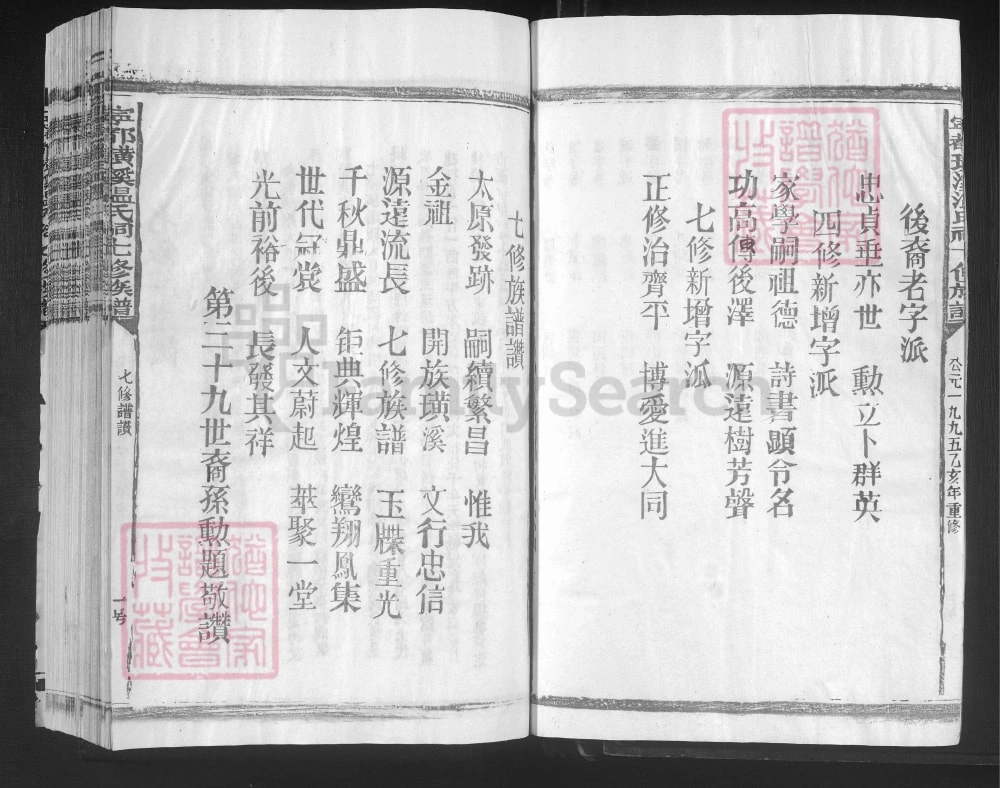 公元一九九五乙亥年重修
後裔老字派
忠貞垂亦世 勳立卜群英
四修新增字派
家學嗣祖德 詩書顕令名
功高傳後澤 源遠樹芳聲
七修新增字派
正修治齊平 博愛進大同
七修族譜讚
太原發跡 嗣續繁昌 惟我
金祖 開族璜溪 文行忠信
源遠流長 七修族譜 玉牒重光
千秋鼎盛 钜典輝煌 鸞翔鳳集
世代冠裳 人文蔚起 萃聚一堂
光前裕後 長發其祥
第三十九世裔孫勳題敬讚
寧都璜溪溫氏祠七修族譜
七修譜讚
一号
FamilySearch